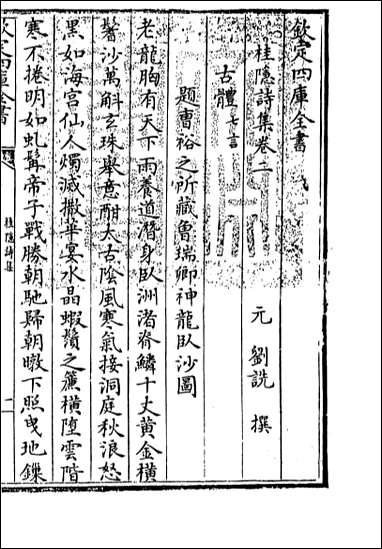 欽定四庫全書
桂隱詩集卷二
元 劉詵 撰
古體七言
題曹裕之所藏魯瑞卿神龍臥沙圖
老龍胸有天下雨養道潛身臥洲渚脊鱗十丈黃金橫
鬐沙萬斛玄珠舉意酣太古陰風寒氣接洞庭秋浪怒
黑如海宮仙人燭滅撤華宴水晶蝦鬚之簾橫墮雲階
寒不捲明如虬髯帝子戰勝朝馳歸朝暾下照曳地鏁
欽定四庫全書
桂隱詩集
二